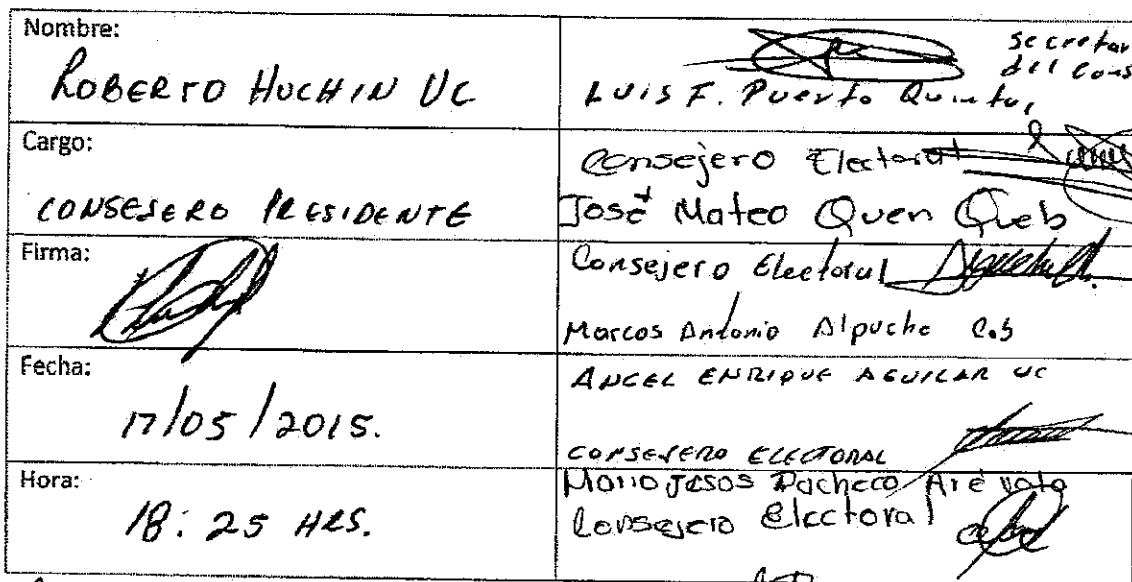 Nombre:
ROBERTO HUCHIN UC
Cargo:
CONSEJERO PRESIDENTE
Firma:
Fecha:
17/05/2015.
Hora:
18:25 HRS.
secretar
del cons
LUIS F. Puerto Quintal
Consejero Electoral
José Mateo Quen Queb
Consejero Electoral
Marcos Antonio Alpuche
ANGEL ENRIQUE AGUILAR UC
CONSEJERO ELECTORAL
Pacheco Arévalo
Consejero Electoral